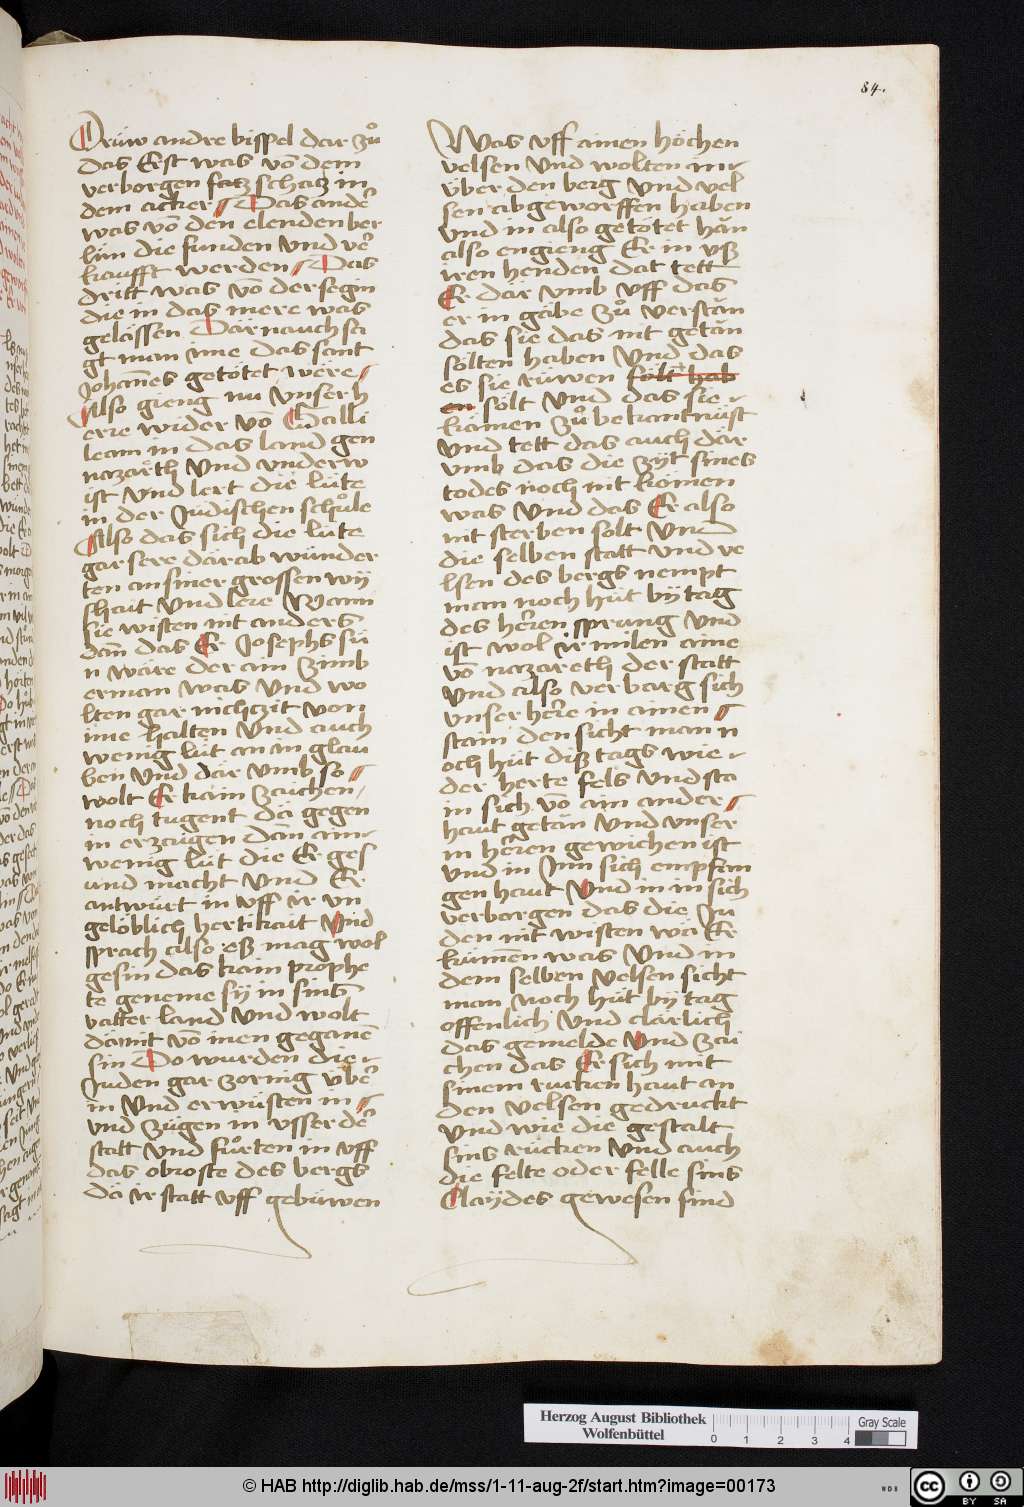 84.
Drüw andre bispel dar zuͦ
das Erst was vō dem
verborgen schatz in
dem acker Das andē
was vō den elenden ber
lün die funden Vnd vē
kaufft werden Das
dritt was vō der segin
die in das mere was
gelässen Dār nauch sa
gt man ime das sant
Johañes getötet wēre
Also gieng nu Vnser h
erre wider vō Galli
leam in das land gen
nazarēth Vnd vnderw
ist Vnd lert die lüte
in der Jüdischen schuͦle
Also das sich die lüte
gar sere dārab wünder
ten an siner grossen wÿ
shait Vnd lere Wann
sie wisten nit anders
dān das Er Josephs sü
n wāre der ain zimb
erman was Vnd wo
lten gar nichzit von
ime halten Vnd auch
wenig lüt an in glau
ben Vnd dār Vmb so
wolt Er kain zaichen
noch tugent dā gegen
in erzaigen dān ain
wenig lüt die Er ges
und macht Vnd Er
antwürt in vff ir vn
gelöblich hertikait Vnd
sprach also eß mag wol
gesin das kain prophe
te geneme sÿ in sins
vatter land Vnd wolt
dāmit vō inen geganē
sin Do wurden die
Juden gar zornig übē
in Vnd erwüsten in
vnd zügen in vsser dē
statt Vnd fuͦrten in vff
das obroste des bergs
dā ir statt vff gebüwen
Was vff ainen höchen
velsen Vnd wolten in
über den berg Vnd vel
sen abgeworffen haben
Vnd in also getötet hān
also engieng Er in vß
iren henden dat tett
Er dār vmb vff das
er in gābe zuͦ verstān
das sie das nit getān
sölten haben Vnd das
es sie rüwen sölt hab
en sölt Vnd das sie
kāmen zuͦ bekantnüst
Vnd tett das auch dār
vmb das die zÿt sines
todes noch nit kömen
was Vnd das Er also
nit sterben solt Vnd
die selben statt Vnd ve
lsen des bergs nempt
man noch hüt bÿ tag
des herren sprung Vnd
ist wol ir milen aine
vō nazareth der statt
Vnd also verbarg sich
vnser here in ainen
stain den sicht man n
och hüt diß tags wie
der herte fels Vnd sta
in sich vō ain ander
haut getān Vnd vnser
m herren gewichen ist
Vnd in Jnn sich empfan
gen haut Vnd in in sich
verborgen das die Ju
den nit wisten wā Er
kumen was Vnd in
dem selben Velsen sicht
man noch hüt bÿ tag
offenlich Vnd clārlich
das gemelde Vnd zai
chen das Er sich mit
sinem rucken haut an
den velsen gedruckt
Vnd wie die gestalt
sins rücken Vnd auch
die felte oder felle sins
Claÿdes gewesen sind
Herzog August Bibliothek
Wolfenbüttel
0 1 2 3 4
Gray Scale
© HAB http://diglib.hab.de/mss/1-11-aug-2f/start.htm?image=00173
WDB
cc BY SA